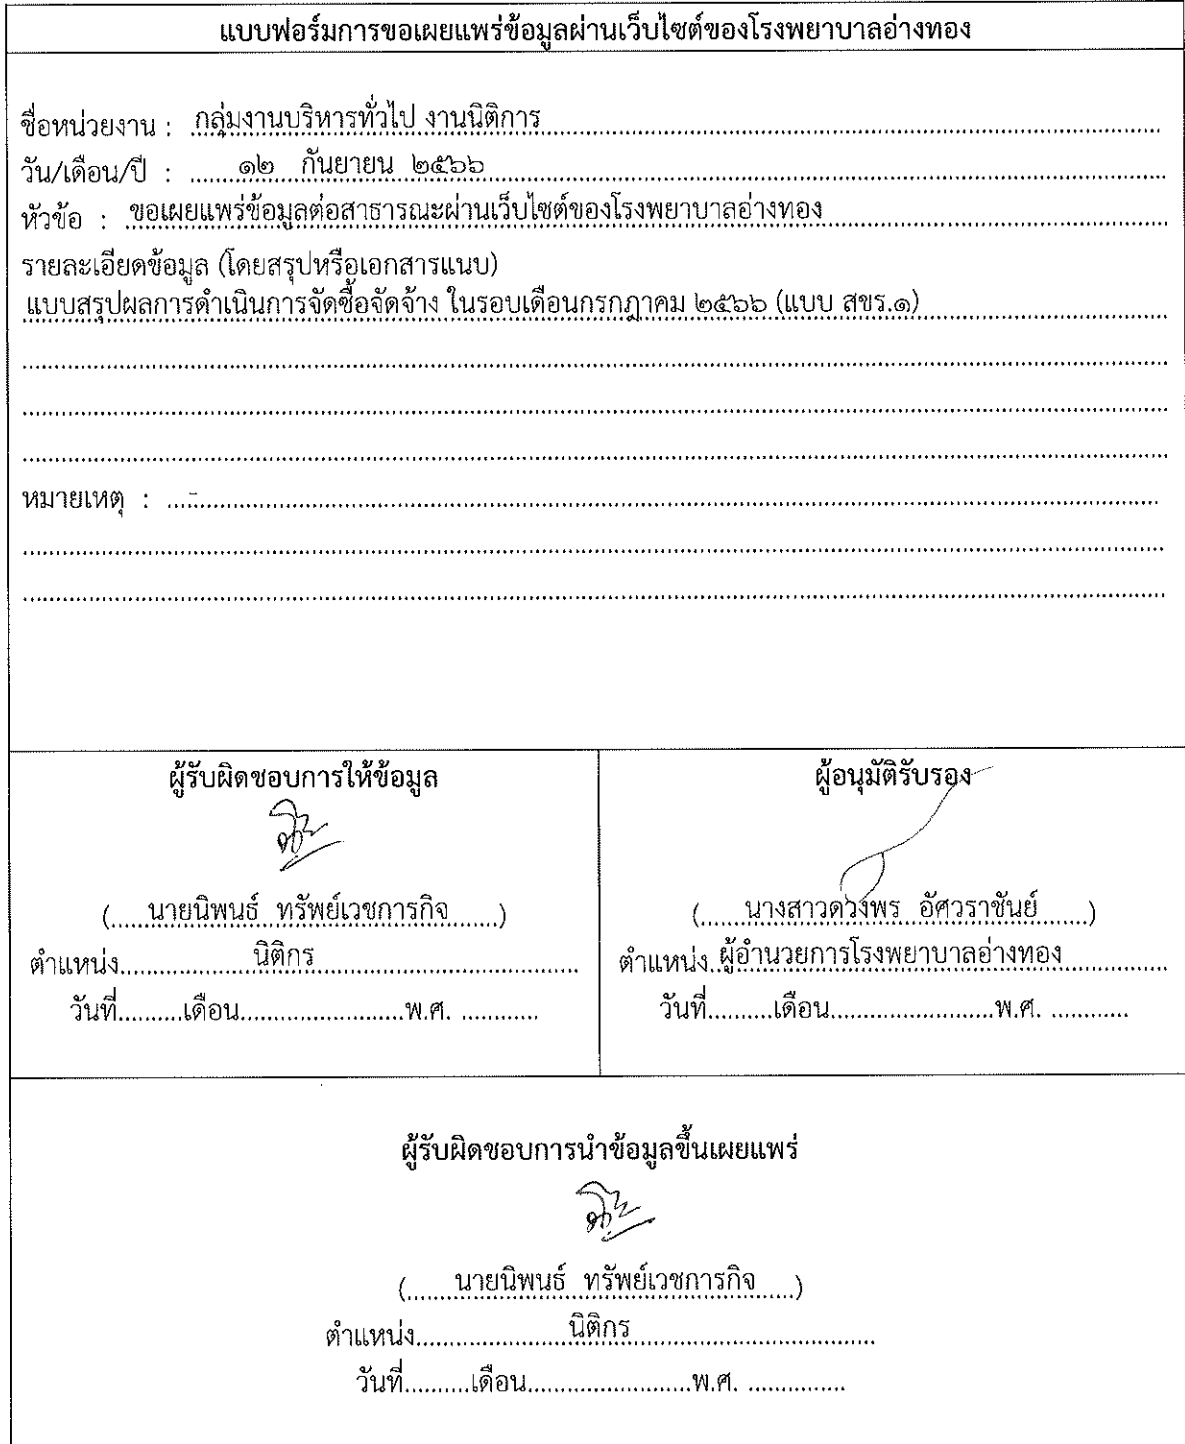 แบบฟอร์มการขอเผยแพร่ข้อมูลผ่านเว็บไซต์ของโรงพยาบาลอ่างทอง
ชื่อหน่วยงาน : กลุ่มงานบริหารทั่วไป งานนิติการ
วัน/เดือน/ปี : ๑๒ กันยายน ๒๕๖๖
หัวข้อ : ขอเผยแพร่ข้อมูลต่อสาธารณะผ่านเว็บไซต์ของโรงพยาบาลอ่างทอง
รายละเอียดข้อมูล (โดยสรุปหรือเอกสารแนบ)
แบบสรุปผลการดำเนินการจัดซื้อจัดจ้าง ในรอบเดือนกรกฎาคม ๒๕๖๖ (แบบ สขร.๑)
หมายเหตุ : -
ผู้รับผิดชอบการให้ข้อมูล
(นายนิพนธ์ ทรัพย์เวชการกิจ)
ตำแหน่ง นิติกร
วันที่..........เดือน.........................พ.ศ. ............
ผู้อนุมัติรับรอง
(นางสาวดวงพร อัศวราชันย์)
ตำแหน่ง ผู้อำนวยการโรงพยาบาลอ่างทอง
วันที่..........เดือน.........................พ.ศ. ............
ผู้รับผิดชอบการนำข้อมูลขึ้นเผยแพร่
(นายนิพนธ์ ทรัพย์เวชการกิจ)
ตำแหน่ง นิติกร
วันที่..........เดือน.........................พ.ศ. ...............